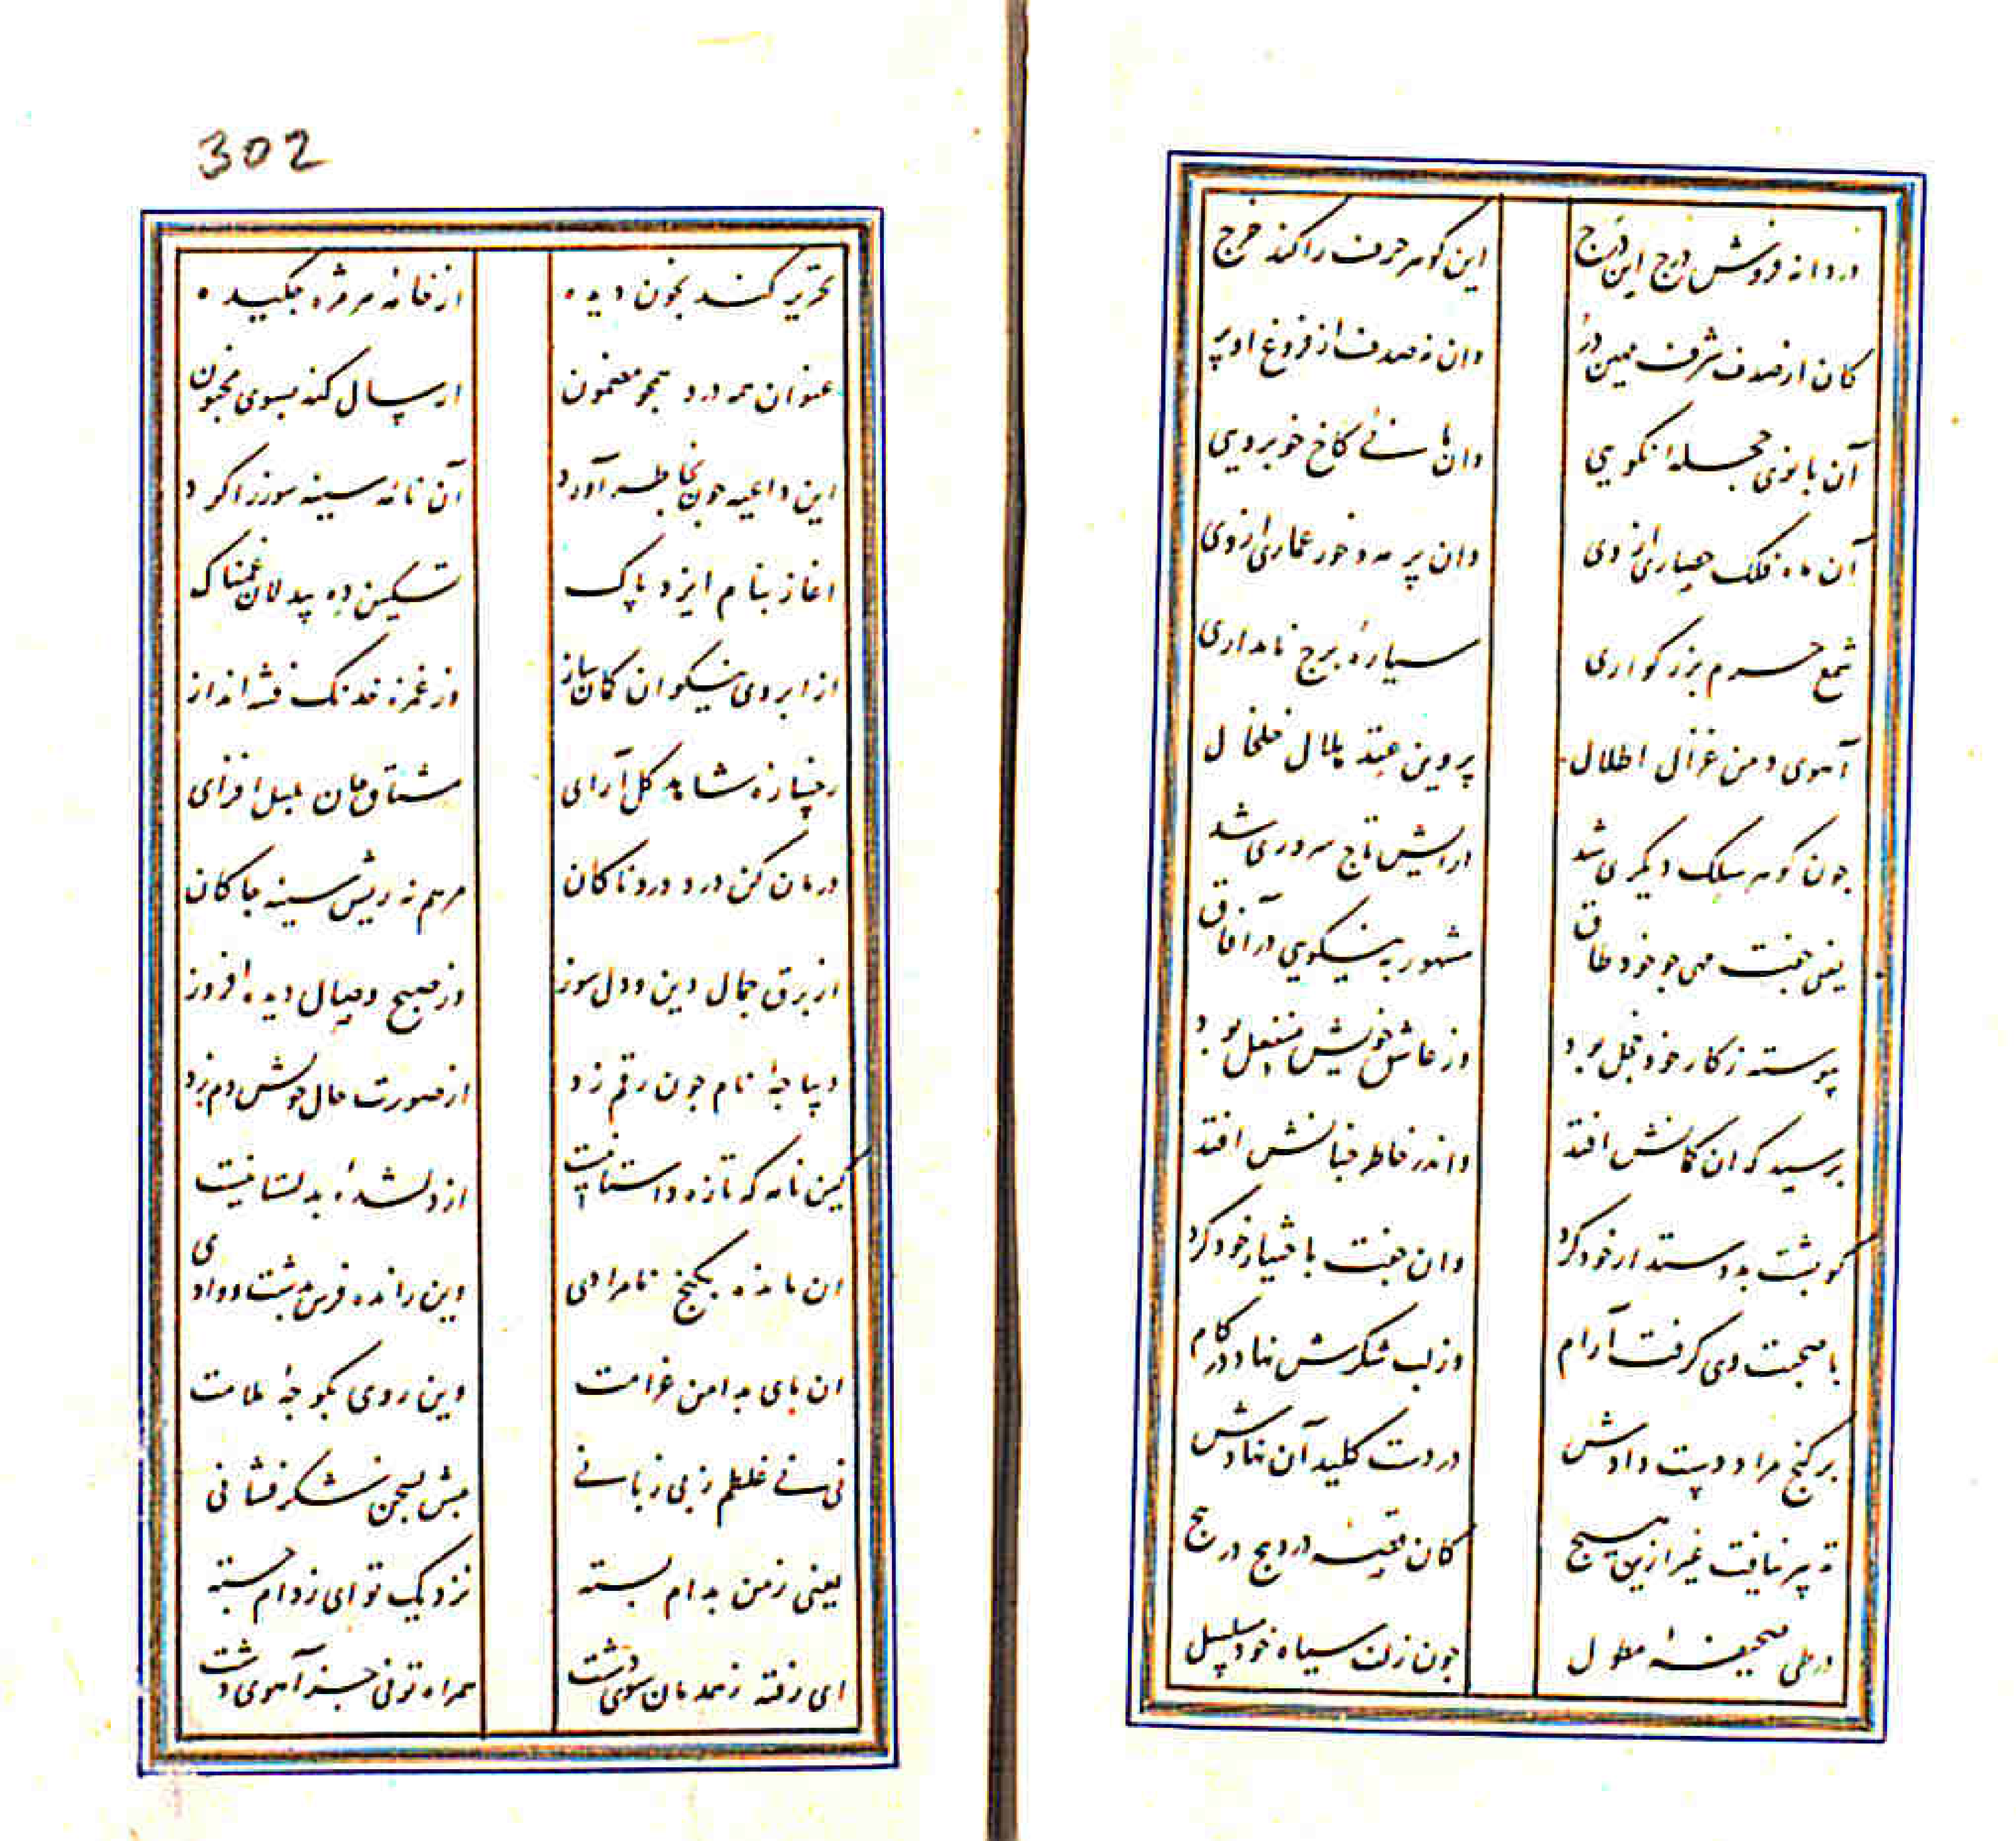 دردانه فروش درج این درج
این کوهر حرف را کند خرج
کان از صدف شرف مهین در
وان نه صدف از فروغ او پر
آن بانوی حجله نکویی
وان بانی کاخ خوبرویی
آن ماه فلک حصاری از وی
وان پر مه و خور عماری از وی
شمع حرم بزرکواری
سیاره برج نامداری
آهوی دمن غزال اطلال
پروین عقد هلال خلخال
جون کوهر سلک دیکری شد
ارایش تاج سروری شد
یعنی جفت مهی جو خود طاق
مشهور به نیکویی در آفاق
پیوسته ز کار خود خجل بود
وز عاشق خویش منفعل بود
ترسید که ان کمانش افتد
واندر خاطر جنانش افتد
کو پشت به دوستدار خود کرد
وان جفت باختیار خود کرد
با صحبت وی کرفت آرام
وز لب شکرش نهاد در کام
بر کنج مراد دست دادش
در دست کلید آن نهادش
تدبیر نیافت غیر ازین هیچ
کان قصه درد پیچ در پیچ
در طی صحیفه مطول
جون زلف سیاه خود مسلسل
302
تحریر کند بخون دیده
از خامه هر مژه جکیده
عنوان همه درد همجو مضمون
ارسال کند بسوی مجنون
این داعیه جون بخاطر آورد
آن نامه سینه سوز را کرد
اغاز بنام ایزد پاک
تسکین ده بیدلان غمناک
از ابروی نیکوان کمان ساز
وز غمزه خدنک فتنه انداز
رخساره شاهد کل آرای
مشتاقی جان بلبل افزای
درمان کن درد دردناکان
مرهم نه ریش سینه جاکان
از برق جمال دین و دل سوز
وز صبح وصال دیده افروز
دیباجه نام جون رقم زد
از صورت حال خویش دم زد
کین نامه که تازه داستانیست
از دلشده به دلستانیست
ان مانده بکنج نامرادی
وین رانده فرس بدشت و وادی
ان پای به دامن غرامت
وین روی بکوجه ملامت
نی نی غلطم ز بی زبانی
پیش بسخن شکر فشانی
یعنی ز من به دام بسته
نزدیک تو ای ز دام جسته
ای رفته ز همدمان سوی دشت
همراه تو نی جز آهوی دشت